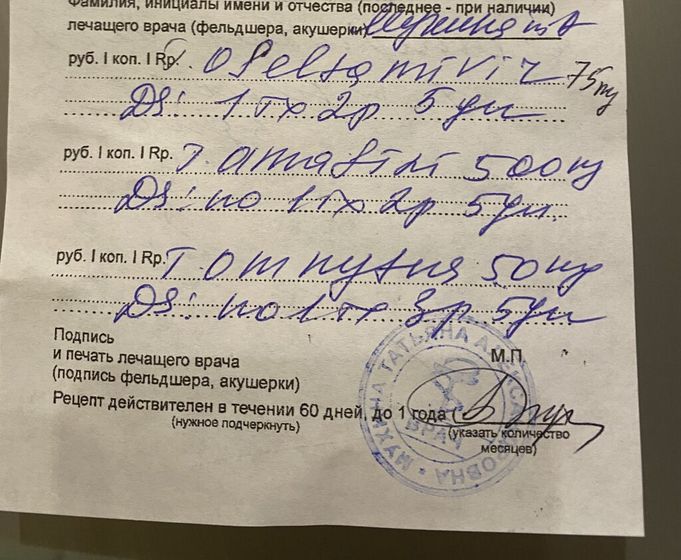 Фамилия, инициалы имени и отчества (последнее - при наличии)
лечащего врача (фельдшера, акушерки)
руб. I коп. I Rp. T. Oseltamivir 75mg
DS: 1 т х 2р 5 дн
руб. I коп. I Rp. T. 500mg
DS: по 1 т х 2р 5 дн.
руб. I коп. I Rp. T 50 mg
DS: по 1 т х 3р 5 дн
Подпись
и печать лечащего врача
(подпись фельдшера, акушерки)
М.П.
Рецепт действителен в течении 60 дней, до 1 года (
(нужное подчеркнуть)
(указать количество
месяцев)
МУХИНА ТАТЬЯНА
ВРАЧ